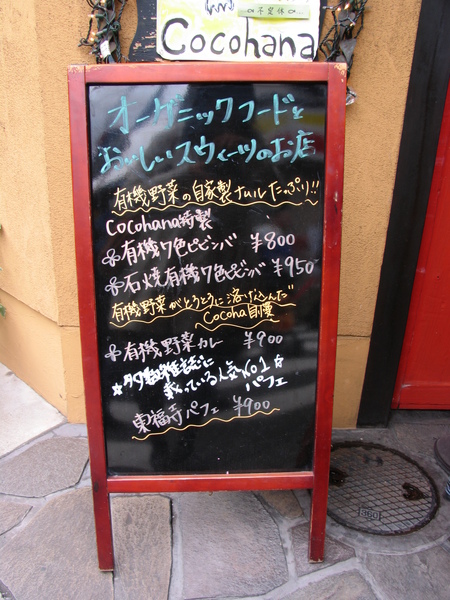 ∞不定休∞
Cocohana
オーガニックフードと
おいしいスウィーツのお店
有機野菜の自家製ナムルたっぷり!!
Cocohana特製
有機7色ビビンバ ¥800
石焼有機7色ビビンバ ¥950
有機野菜がとろとろに溶け込んだ
Cocoha自慢
有機野菜カレー ¥900
★多数雑誌に
載っている人気No.1
パフェ
東福寺パフェ ¥900